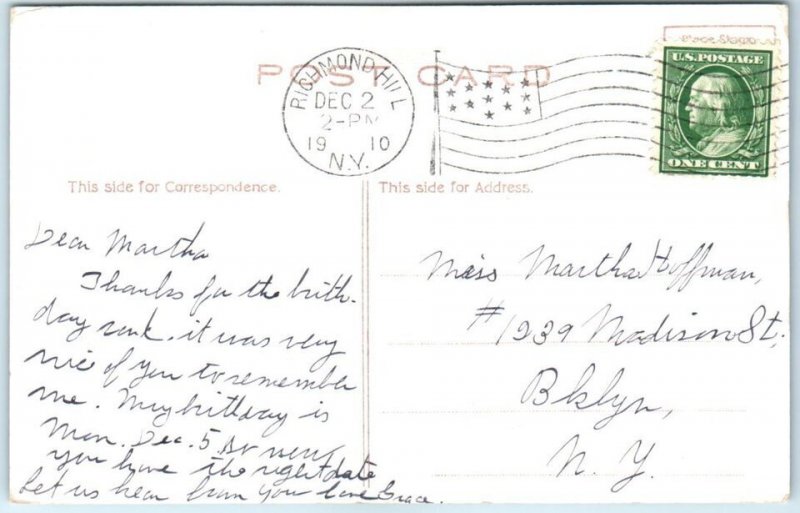 Place Stamp
U.S. POSTAGE
ONE CENT
POST CARD
RICHMOND HILL
DEC 2
2-PM
19 10
N.Y.
This side for Correspondence.
This side for Address.
Dear Martha
Thanks for the birth-
day . it was very
nice of you to remember
me. My birthday is
Mon. Dec. 5 so now
you have the right date
Let us hear from you love Grace.
Miss Martha Hoffman,
#1239 Madison St.,
Bklyn,
N. Y.